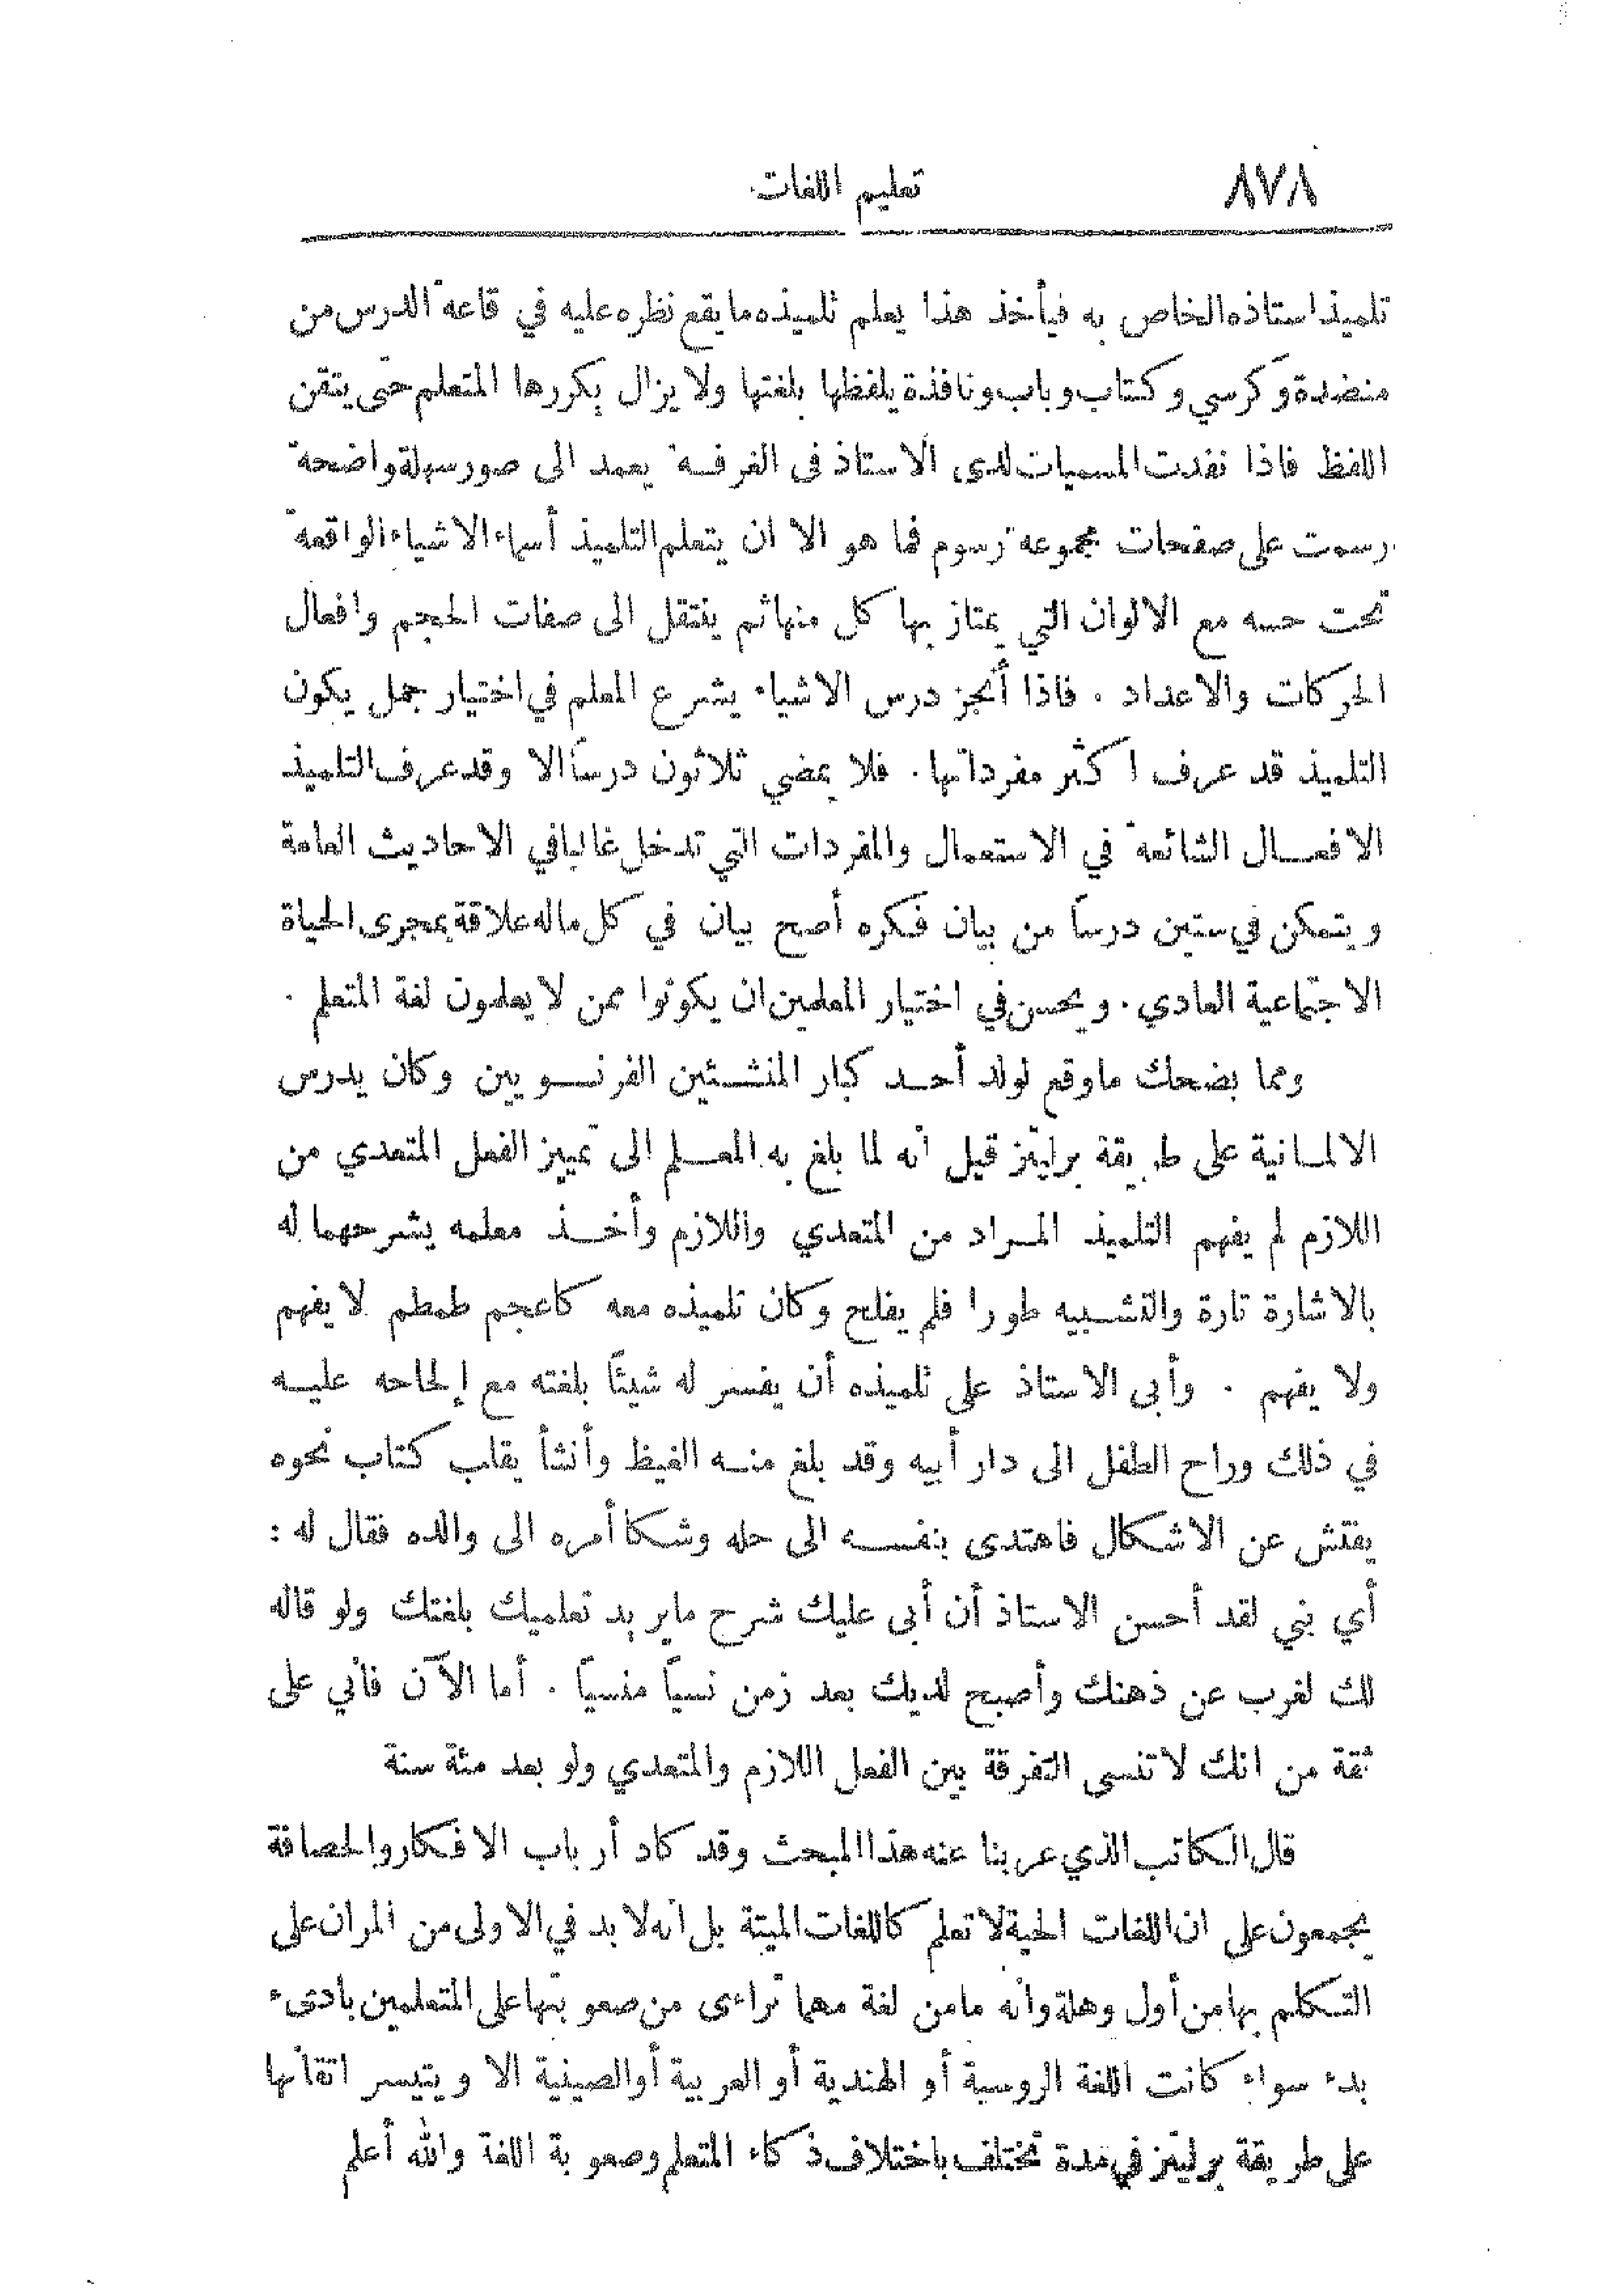 ٨٧٨
تعليم اللغات
تلميذ استاذه الخاص به فيأخذ هذا يعلم تلميذه ما يقع نظره عليه في قاعة الدرس من
منضدة وكرسي وكتاب وباب ونافذة يلفظها بلغتها ولا يزال يكررها المتعلم حتى يتقن
اللفظ فاذا نفدت المسميات لدى الاستاذ في الغرفة يعمد الى صور سهلة واضحة
رسمت على صفحات مجموعة رسوم فما هو الا ان يتعلم التلميذ أسماء الاشياء الواقعة
تحت حسه مع الالوان التي يمتاز بها كل منها ثم ينتقل الى صفات الحجم وافعال
الحركات والاعداد . فاذا أنجز درس الاشياء يشرع المعلم في اختيار جمل يكون
التلميذ قد عرف اكثر مفرداتها . فلا يمضي ثلاثون درساً الا وقد عرف التلميذ
الافعال الشائعة في الاستعمال والمفردات التي تدخل غالبا في الاحاديث العامة
ويتمكن في ستين درساً من بيان فكره أصح بيان في كل ماله علاقة بمجرى الحياة
الاجتماعية العادي . ويحسن في اختيار المعلمين ان يكونوا ممن لا يعلمون لغة المتعلم .
ومما يضحك ما وقع لولد أحد كبار المنشئين الفرنسويين وكان يدرس
الالمانية على طريقة برليتز قيل انه لما بلغ به المعلم الى تمييز الفعل المتعدي من
اللازم لم يفهم التلميذ المراد من المتعدي واللازم وأخذ معلمه يشرحهما له
بالاشارة تارة والتشبيه طورا فلم يفلح وكان تلميذه معه كاعجم طمطم لا يفهم
ولا يفهم . وأبى الاستاذ على تلميذه أن يفسر له شيئاً بلغته مع إلحاحه عليه
في ذلك وراح الطفل الى دار أبيه وقد بلغ منه الغيظ وأنشأ يقلب كتاب نحوه
يفتش عن الاشكال فاهتدى بنفسه الى حله وشكا أمره الى والده فقال له :
أي بني لقد أحسن الاستاذ أن أبى عليك شرح ما يريد تعلميك بلغتك ولو قاله
لك لغرب عن ذهنك وأصبح لديك بعد زمن نسياً منسياً . أما الآن فأني على
ثقة من انك لا تنسى التفرقة بين الفعل اللازم والمتعدي ولو بعد مئة سنة
قال الكاتب الذي عربنا عنه هذا المبحث وقد كاد أرباب الافكار والحصافة
يجمعون على ان اللغات الحية لا تعلم كاللغات الميتة بل انه لا بد في الاولى من المران على
التكلم بها من أول وهلة وانه ما من لغة مهما تراءى من صعوبتها على المتعلمين بادىء
بدء سواء كانت اللغة الروسية أو الهندية أو العربية أو الصينية الا ويتيسر اتقانها
على طريقة برليتز في مدة تختلف باختلاف ذكاء المتعلم وصعوبة اللغة والله أعلم